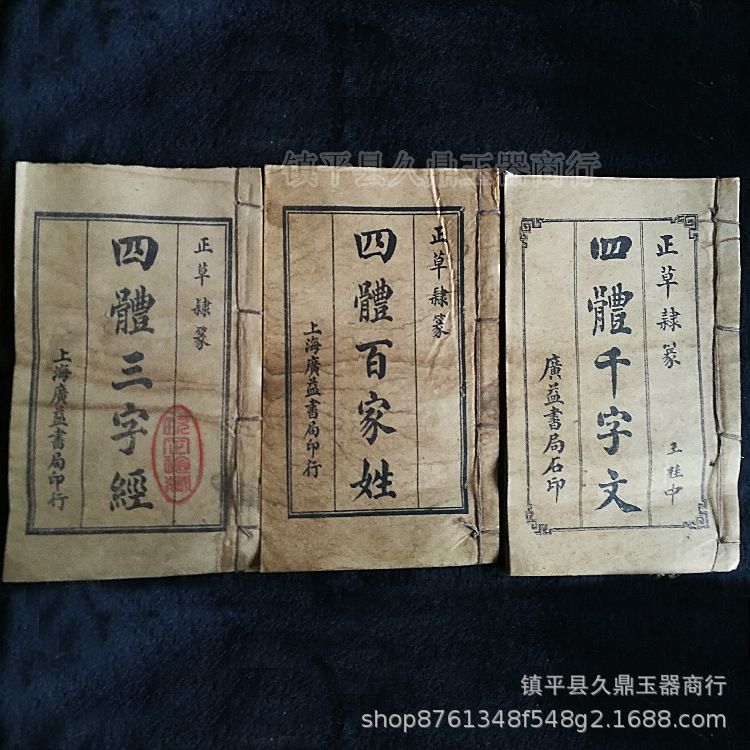 镇平县久鼎玉器商行
正草隸篆
四體三字經
上海廣益書局印行
正草隸篆
四體百家姓
上海廣益書局印行
正草隸篆
四體千字文
廣益書局石印
王桂中
镇平县久鼎玉器商行
shop8761348f548g2.1688.com